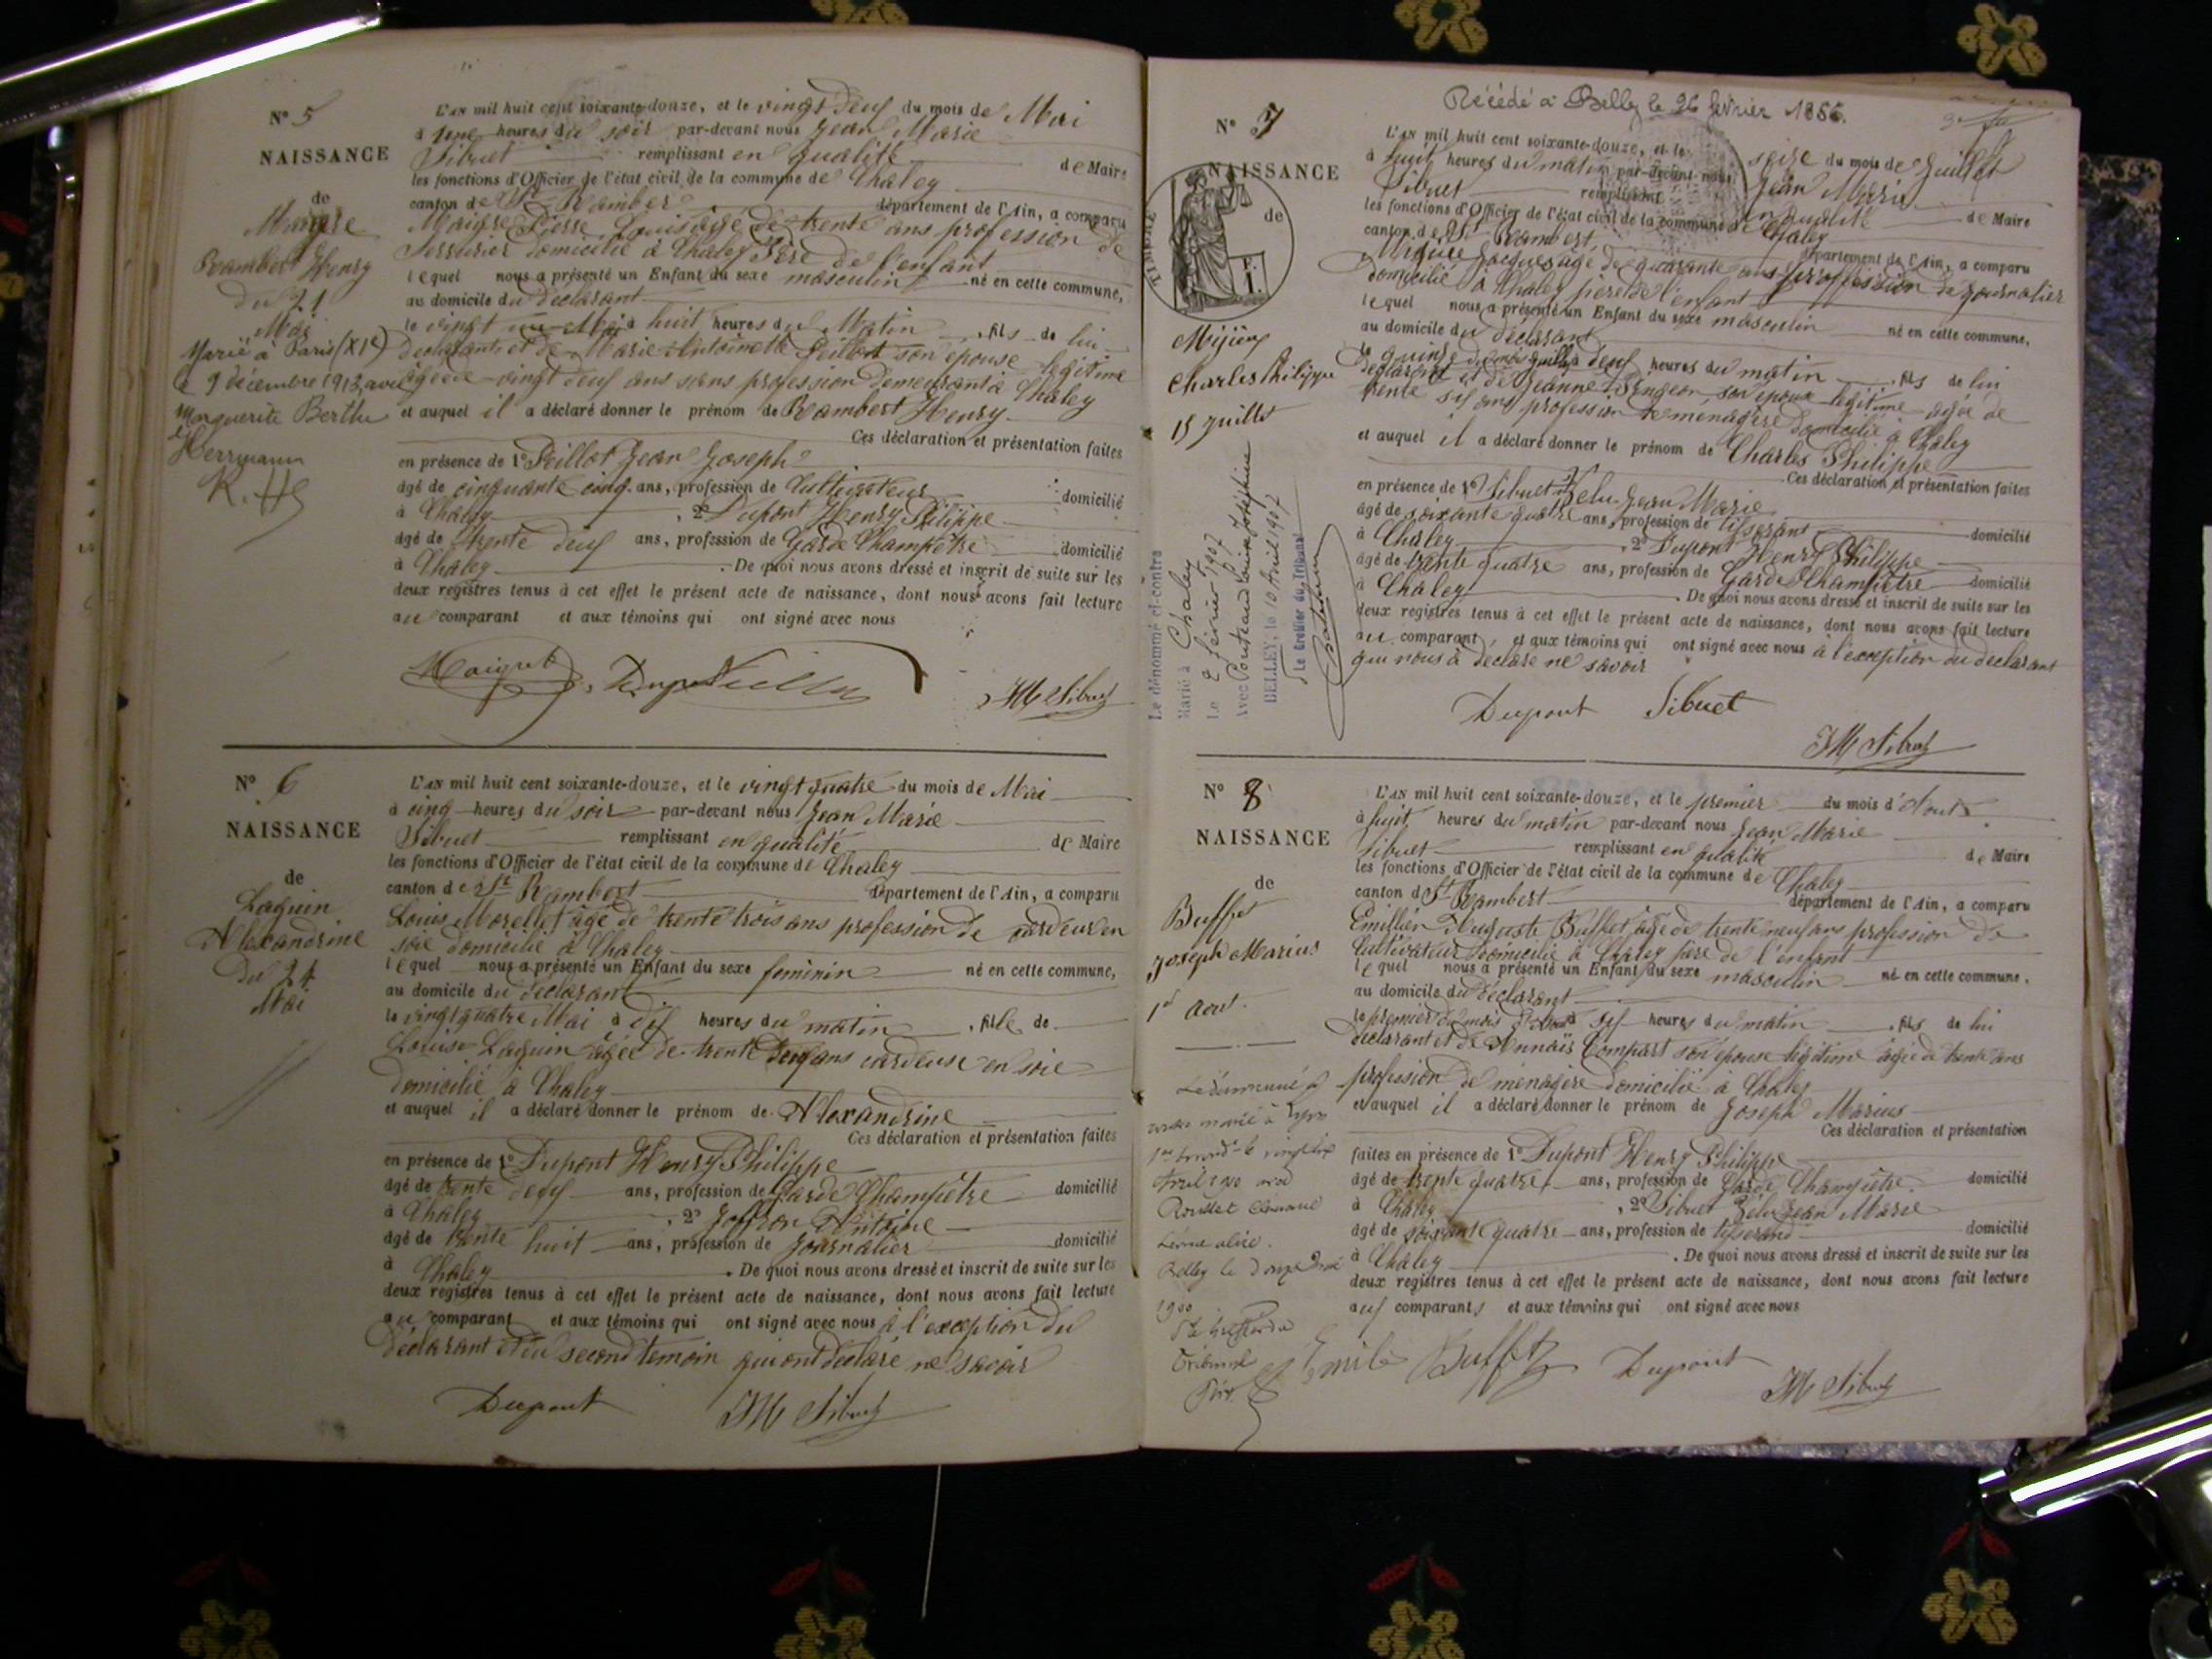 N° 5
NAISSANCE
de
Maigre
Rambert Henry
du 21
Mai
Marié à Paris (XIe)
le 9 décembre 1913, avec
Marguerite Berthe
Herrmann
L'AN mil huit cent soixante-douze, et le vingt deux du mois de Mai
à une heures du soir par-devant nous Jean Marie
Sibuet remplissant en qualité de Maire
les fonctions d'Officier de l'état civil de la commune de Chaley
canton de St Rambert département de l'Ain, a comparu
Maigre Pierre Louis agé de trente ans profession de
Serrurier domicilié à Chaley Père de l'enfant
lequel nous a présenté un Enfant du sexe masculin né en cette commune,
au domicile du déclarant
le vingt un Mai à huit heures du Matin, fils de lui
déclarant et de Marie Antoinette Peillot son épouse légitime
agée de vingt deux ans sans profession demeurant à Chaley
et auquel il a déclaré donner le prénom de Rambert Henry
Ces déclaration et présentation faites
en présence de 1° Peillot Jean Joseph
âgé de cinquante cinq ans, profession de Cultivateur domicilié
à Chaley, 2° Dupont Henry Philippe
âgé de trente deux ans, profession de Garde Champêtre domicilié
à Chaley. De quoi nous avons dressé et inscrit de suite sur les
deux registres tenus à cet effet le présent acte de naissance, dont nous avons fait lecture
au comparant et aux témoins qui ont signé avec nous
Maigre Dupont Peillot JM Sibuet
N° 6
NAISSANCE
de
Laguin
Alexandrine
du 24
Mai
L'AN mil huit cent soixante-douze, et le vingt quatre du mois de Mai
à cinq heures du soir par-devant nous Jean Marie
Sibuet remplissant en qualité de Maire
les fonctions d'Officier de l'état civil de la commune de Chaley
canton de St Rambert département de l'Ain, a comparu
Louis Morellet âgé de trente trois ans profession de cardeur en
soie domicilié à Chaley
lequel nous a présenté un Enfant du sexe feminin né en cette commune,
au domicile du déclarant
le vingt quatre Mai à dix heures du matin, fille de
Louise Laguin âgée de trente deux ans cardeuse en soie
domicilié à Chaley
et auquel il a déclaré donner le prénom de Alexandrine
Ces déclaration et présentation faites
en présence de 1° Dupont Henry Philippe
âgé de trente deux ans, profession de Garde Champêtre domicilié
à Chaley, 2° Joffron Antoine
âgé de trente huit ans, profession de Journalier domicilié
à Chaley. De quoi nous avons dressé et inscrit de suite sur les
deux registres tenus à cet effet le présent acte de naissance, dont nous avons fait lecture
au comparant et aux témoins qui ont signé avec nous à l'exception du
déclarant et du second temoin qui ont déclaré ne savoir
Dupont JM Sibuet
Décédé à Belley le 26 février 1956.
N° 7
NAISSANCE
de
TIMBRE
Charles Philippe
15 Juillet
Le dénommé ci-contre
Marié à Chaley
Le 2 février 1907
Avec Ponteaud Louise Joséphine
BELLEY, le 10 Avril 1907
Le Greffier du Tribunal
L'AN mil huit cent soixante-douze, et le seize du mois de Juillet
à huit heures du matin par-devant nous Jean Marie
Sibuet remplissant en qualité de Maire
les fonctions d'Officier de l'état civil de la commune de Chaley
canton de St Rambert, département de l'Ain, a comparu
Jacques agé de quarante ans profession de journalier
domicilié à Chaley pere de l'enfant
lequel nous a présenté un Enfant du sexe masculin né en cette commune,
au domicile du déclarant
le quinze du mois Juillet à deux heures du matin, fils de lui
déclarant et de Jeanne son épouse légitime agée de
trente six ans profession de menagère domicilié à Chaley
et auquel il a déclaré donner le prénom de Charles Philippe
Ces déclaration et présentation faites
en présence de 1° Sibuet Jean Marie
âgé de soixante quatre ans, profession de tisserant domicilié
à Chaley, 2° Dupont Henry Philippe
âgé de trente quatre ans, profession de Garde Champêtre domicilié
à Chaley. De quoi nous avons dressé et inscrit de suite sur les
deux registres tenus à cet effet le présent acte de naissance, dont nous avons fait lecture
au comparant, et aux témoins qui ont signé avec nous à l'exception du déclarant
qui nous à déclaré ne savoir
Dupont Sibuet
JM Sibuet
N° 8
NAISSANCE
de
Buffet
Joseph Marius
1er Aout.
Belley le
1900
Tribunal
L'AN mil huit cent soixante-douze, et le premier du mois d'Aout
à huit heures du matin par-devant nous Jean Marie
Sibuet remplissant en qualité de Maire
les fonctions d'Officier de l'état civil de la commune de Chaley
canton de St Rambert département de l'Ain, a comparu
Emillien Auguste Buffet, âgé de trente neuf ans profession de
Cultivateur domicilié à Chaley père de l'enfant
lequel nous a présenté un Enfant du sexe masculin né en cette commune,
au domicile du déclarant
le premier du mois d'Aout à six heures du matin, fils de lui
déclarant et de Annaïs Compart son épouse légitime âgée de trente ans
profession de ménagère domicilié à Chaley
et auquel il a déclaré donner le prénom de Joseph Marius
Ces déclaration et présentation
faites en présence de 1° Dupont Henry Philippe
âgé de trente quatre ans, profession de Garde Champêtre domicilié
à Chaley, 2° Sibuet Jean Marie
âgé de soixante quatre ans, profession de tisserand domicilié
à Chaley. De quoi nous avons dressé et inscrit de suite sur les
deux registres tenus à cet effet le présent acte de naissance, dont nous avons fait lecture
aux comparants et aux témoins qui ont signé avec nous
Emile Buffet Dupont
JM Sibuet